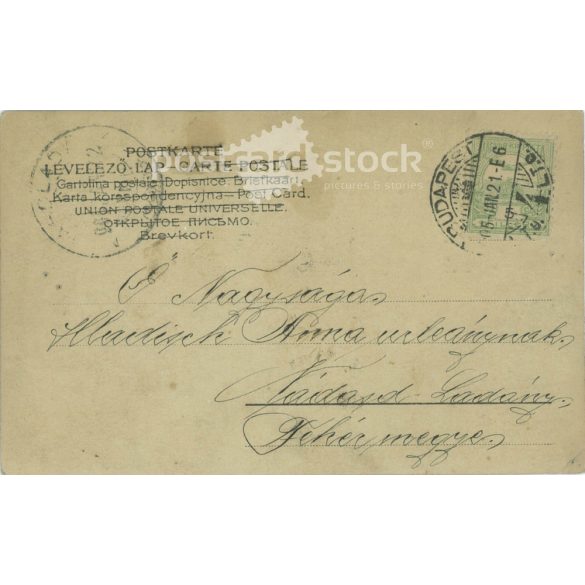 postcardstock®
pictures & stories
POSTKARTE
LEVELEZŐ-LAP - CARTE POSTALE
Cartolina postale - Dopisnice. Briefkaart
Karta korespondencyjna - Post Card.
UNION POSTALE UNIVERSELLE.
ОТКРЫТОЕ ПИСЬМО.
Brevkort.
BUDAPEST
05 JAN. 21 - E 6
Ő Nagysága
Anna urleánynak
Nádasd-Ladány
Fehér megye